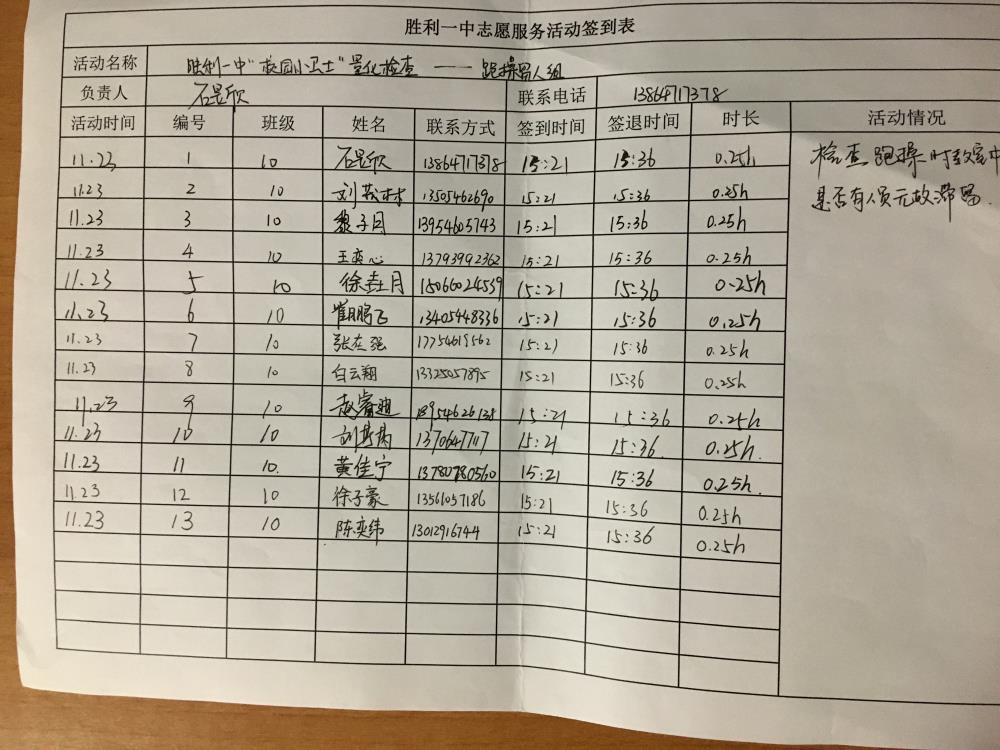 胜利一中志愿服务活动签到表
活动名称 胜利一中"校园小卫士"量化检查 —— 跑操男人组
负责人 石昱欣 联系电话 13864717378
活动时间 编号 班级 姓名 联系方式 签到时间 签退时间 时长 活动情况
11.23 1 10 石昱欣 13864717378 15:21 15:36 0.25h 检查跑操时教室中
11.23 2 10 刘 林 13505462690 15:21 15:36 0.25h 是否有人员无故滞留.
11.23 3 10 黎子月 13954605743 15:21 15:36 0.25h
11.23 4 10 王奕心 13793992362 15:21 15:36 0.25h
11.23 5 10 徐垚月 15066024539 15:21 15:36 0.25h
11.23 6 10 崔鹏飞 13405448336 15:21 15:36 0.25h
11.23 7 10 张在强 17754619562 15:21 15:36 0.25h
11.23 8 10 白云翔 13325057895 15:21 15:36 0.25h
11.23 9 10 赵睿迪 13954626138 15:21 15:36 0.25h
11.23 10 10 1370647717 15:21 15:36 0.25h.
11.23 11 10. 黄佳宁 13780780560 15:21 15:36 0.25h.
11.23 12 10 徐子豪 13561057186 15:21 15:36 0.25h
11.23 13 10 陈奕纬 13012916744 15:21 15:36 0.25h